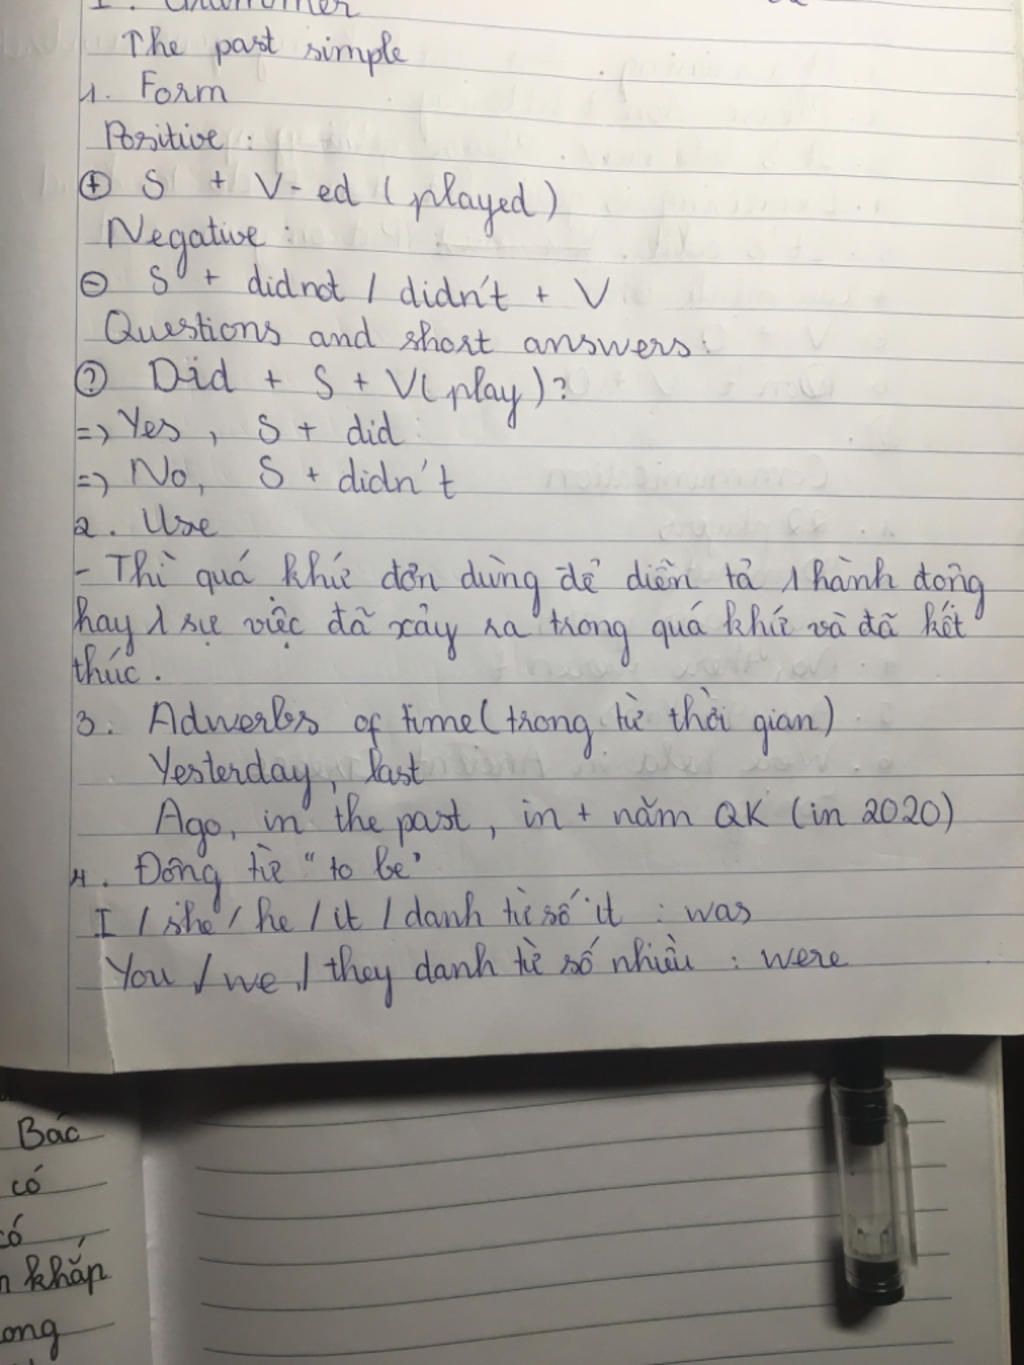 I. Grammer
The past simple
1. Form
Positive :
⊕ S + V-ed (played)
Negative :
⊖ S + didnot / didn't + V
Questions and short answers:
? Did + S + V(play)?
=> Yes, S + did
=> No, S + didn't
2. Use
- Thì quá khứ đơn dùng để diễn tả 1 hành đông
hay 1 sự việc đã xảy ra trong quá khứ và đã kết
thúc.
3. Adwerbs of time (trong từ thời gian)
Yesterday, last
Ago, in the past, in + năm QK (in 2020)
4. Đông từ "to be"
I / she / he / it / danh từ số ít : was
You / we / they danh từ số nhiều : were
Bác
có
có
khắp
ong